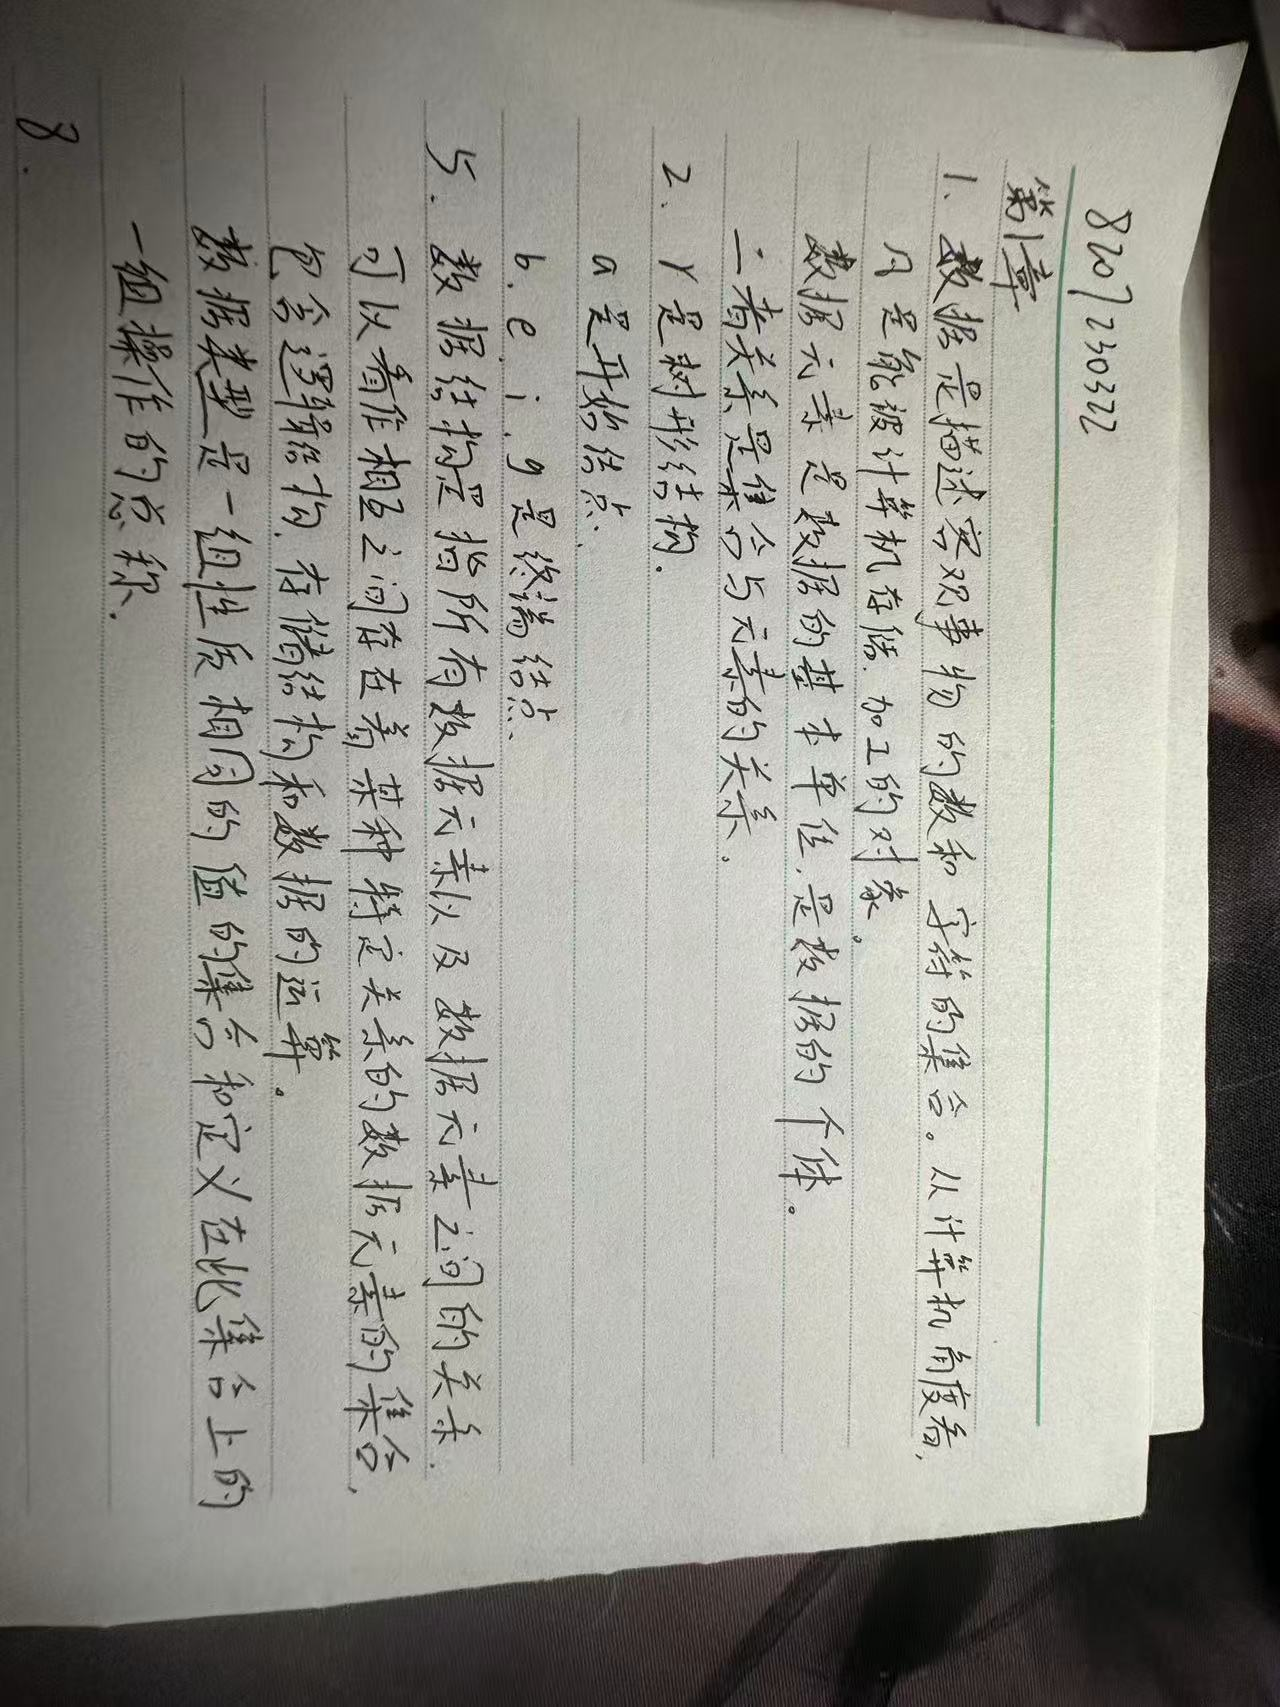 8207230322
第1章
1. 数据是描述客观事物的数和字符的集合。从计算机角度看,
凡是能被计算机存储、加工的对象。
数据元素是数据的基本单位,是数据的个体。
二者关系是集合与元素的关系.
2. r是树形结构.
a是开始结点.
b.e.i.g是终端结点.
5. 数据结构是指所有数据元素以及数据元素之间的关系.
可以看作相互之间存在着某种特定关系的数据元素的集合,
包含逻辑结构.存储结构和数据的运算。
数据类型是一组性质相同的值的集合和定义在此集合上的
一组操作的总称.
8.